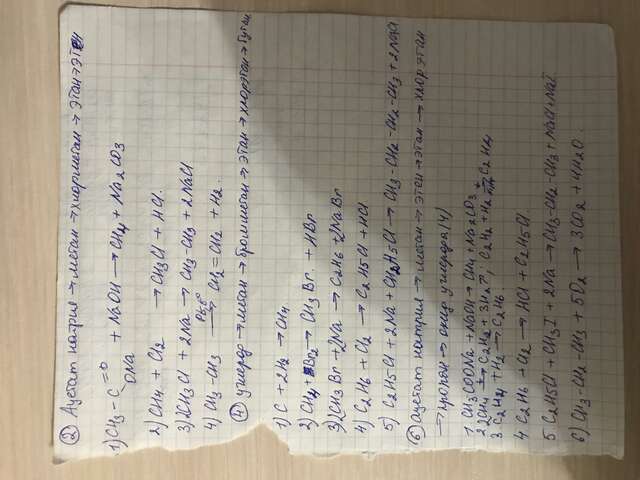 ② Ацетат натрия → метан → хлорметан → этан → этен
1) CH3 - C =O ONa + NaOH → CH4 + Na2CO3
2) CH4 + Cl2 → CH3Cl + HCl.
3) 2CH3Cl + 2Na → CH3-CH3 + 2NaCl
4) CH3-CH3 Pt,t° → CH2=CH2 + H2.
④ углерод → метан → бромметан → этан → хлорэтан → бутан
1) C + 2H2 → CH4
2) CH4 + Br2 → CH3Br + HBr
3) 2CH3Br + 2Na → C2H6 + 2NaBr
4) C2H6 + Cl2 → C2H5Cl + HCl
5) C2H5Cl + 2Na + C2H5Cl → CH3-CH2-CH2-CH3 + 2NaCl
⑥ ацетат натрия → метан → этен → этан → хлорэтан
→ пропан → оксид углерода (4)
1 CH3COONa + NaOH → CH4 + Na2CO3
2 2CH4 → C2H2 + 3H2↑; C2H2 + H2 → C2H4
3 C2H4 + H2 → C2H6
4 C2H6 + Cl2 → HCl + C2H5Cl
5 C2H5Cl + CH3I + 2Na → CH3-CH2-CH3 + NaCl + NaI
6) CH3-CH2-CH3 + 5O2 → 3CO2 + 4H2O.